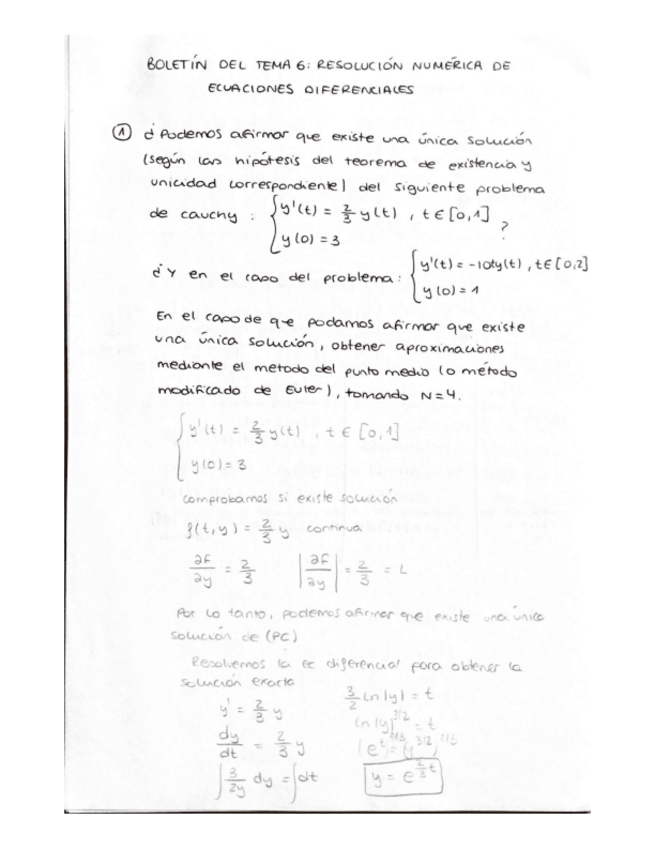 BOLETÍN DEL TEMA 6: RESOLUCIÓN NUMÉRICA DE
ECUACIONES DIFERENCIALES
① ¿Podemos afirmar que existe una única solución
(según las hipótesis del teorema de existencia y
unicidad correspondiente) del siguiente problema
de cauchy: { y'(t) = 2/3 y(t), t ∈ [0,1]
y(0) = 3 ?
¿Y en el caso del problema: { y'(t) = -10ty(t), t ∈ [0,2]
y(0) = 1
En el caso de que podamos afirmar que existe
una única solución, obtener aproximaciones
mediante el metodo del punto medio (o método
modificado de Euler), tomando N=4.
{ y'(t) = 2/3 y(t), t ∈ [0,1]
y(0) = 3
comprobamos si existe solución
f(t,y) = 2/3 y continua
∂f/∂y = 2/3 |∂f/∂y| = 2/3 = L
Por lo tanto, podemos afirmar que existe una única
solución de (PC)
Resolvemos la ec diferencial para obtener la
solución exacta
y' = 2/3 y
dy/dt = 2/3 y
∫ 3/2y dy = ∫dt
3/2 ln|y| = t
ln|y|^3/2 = t
y = e^(2/3 t)